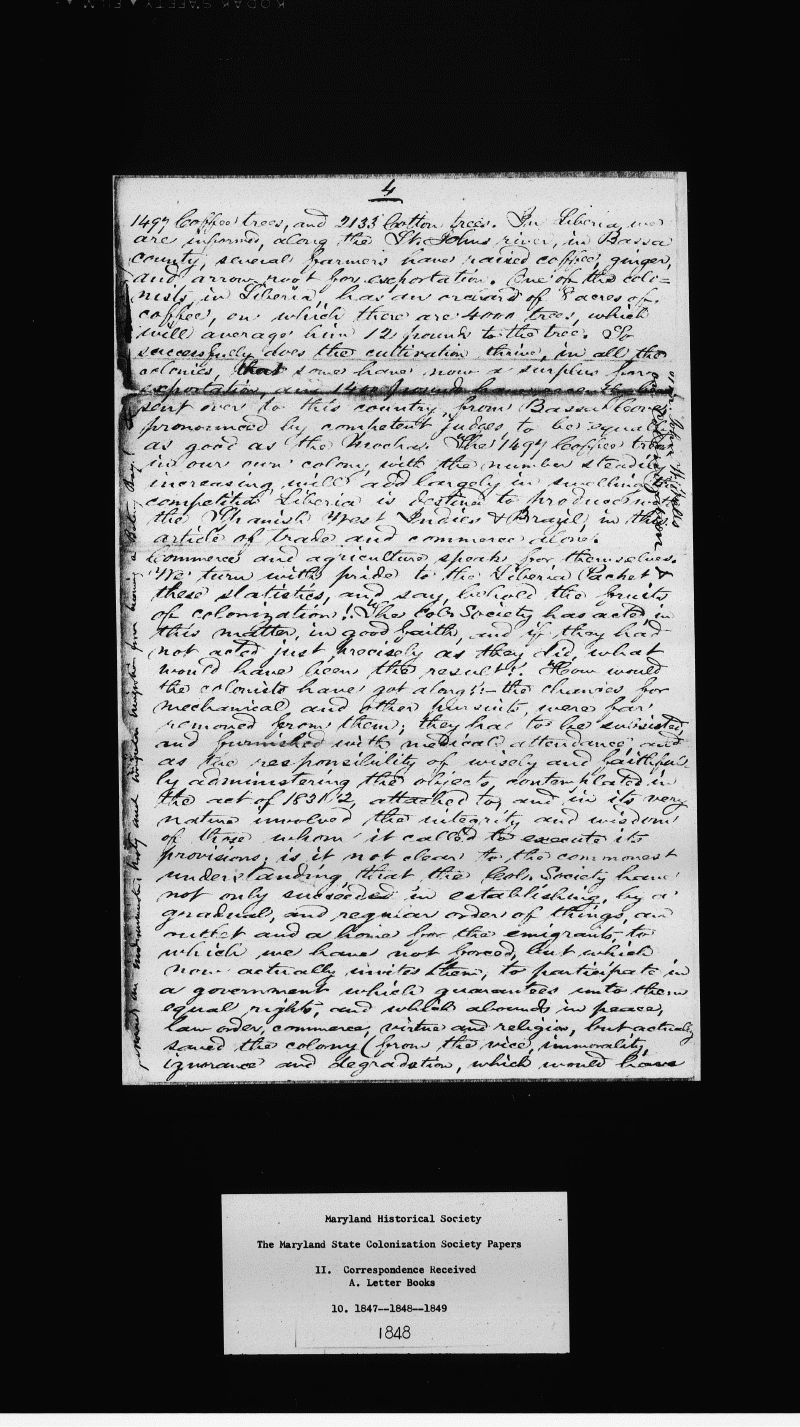 4
1497 Coffee trees, and 2133 Cotton trees. In Liberia, we
are informed, along the St. Johns river, in Bassa
county, several farmers have raised coffee, ginger,
and arrow root for exportation. One of the colo=
nists in Liberia, has an orchard of 8 acres of
coffee, on which there are 4000 trees, which
will average him 12 pounds to the tree. So
successfully does the cultivation thrive, in all the
colonies, that some have now a surplus for
exportation, and 1400 pounds have
sent over to this country, from Bassa Cove
pronounced by competent judges, to be equal
as good as the Mocha. The 1497 Coffee trees
in our own colony, with the number steadily
increasing, will add largely in swelling the
competition Liberia is destined to produce with
the Spanish West Indies & Brazil, in this
article of trade and commerce alone.
Commerce and agriculture speak for themselves.
We turn with pride to the Liberia Packet &
these statistics, and say, behold the fruits
of colonization! The Col. Society has acted in
this matter, in good faith, and if they had
not acted just precisely as they did, what
would have been the result? How would
the colonists have got along?—the chances for
mechanical and other pursuits, were far
removed from them; they had to be subsisted,
and furnished with medical attendance, and
as the responsibility of wisely and faithful-
ly administering the objects contemplated in
the act of 1831/2, attached to, and in its very
nature involved the integrity and wisdom
of those whom it called to execute its
provisions, is it not clear to the commonest
understanding that the Col. Society have
not only succeeded in establishing, by a
gradual, and regular order of things, an
outlet and a home for the emigrants, to
which we have not forced, but which
now actually invites them, to participate in
a government which guarantees unto them
equal rights, and which abounds in peace,
law order, commerce, virtue and religion, but actually
saved the colony (from the vice, immorality,
ignorance and degradation, which would have
Maryland Historical Society
The Maryland State Colonization Society Papers
II. Correspondence Received
A. Letter Books
10. 1847--1848--1849
1848